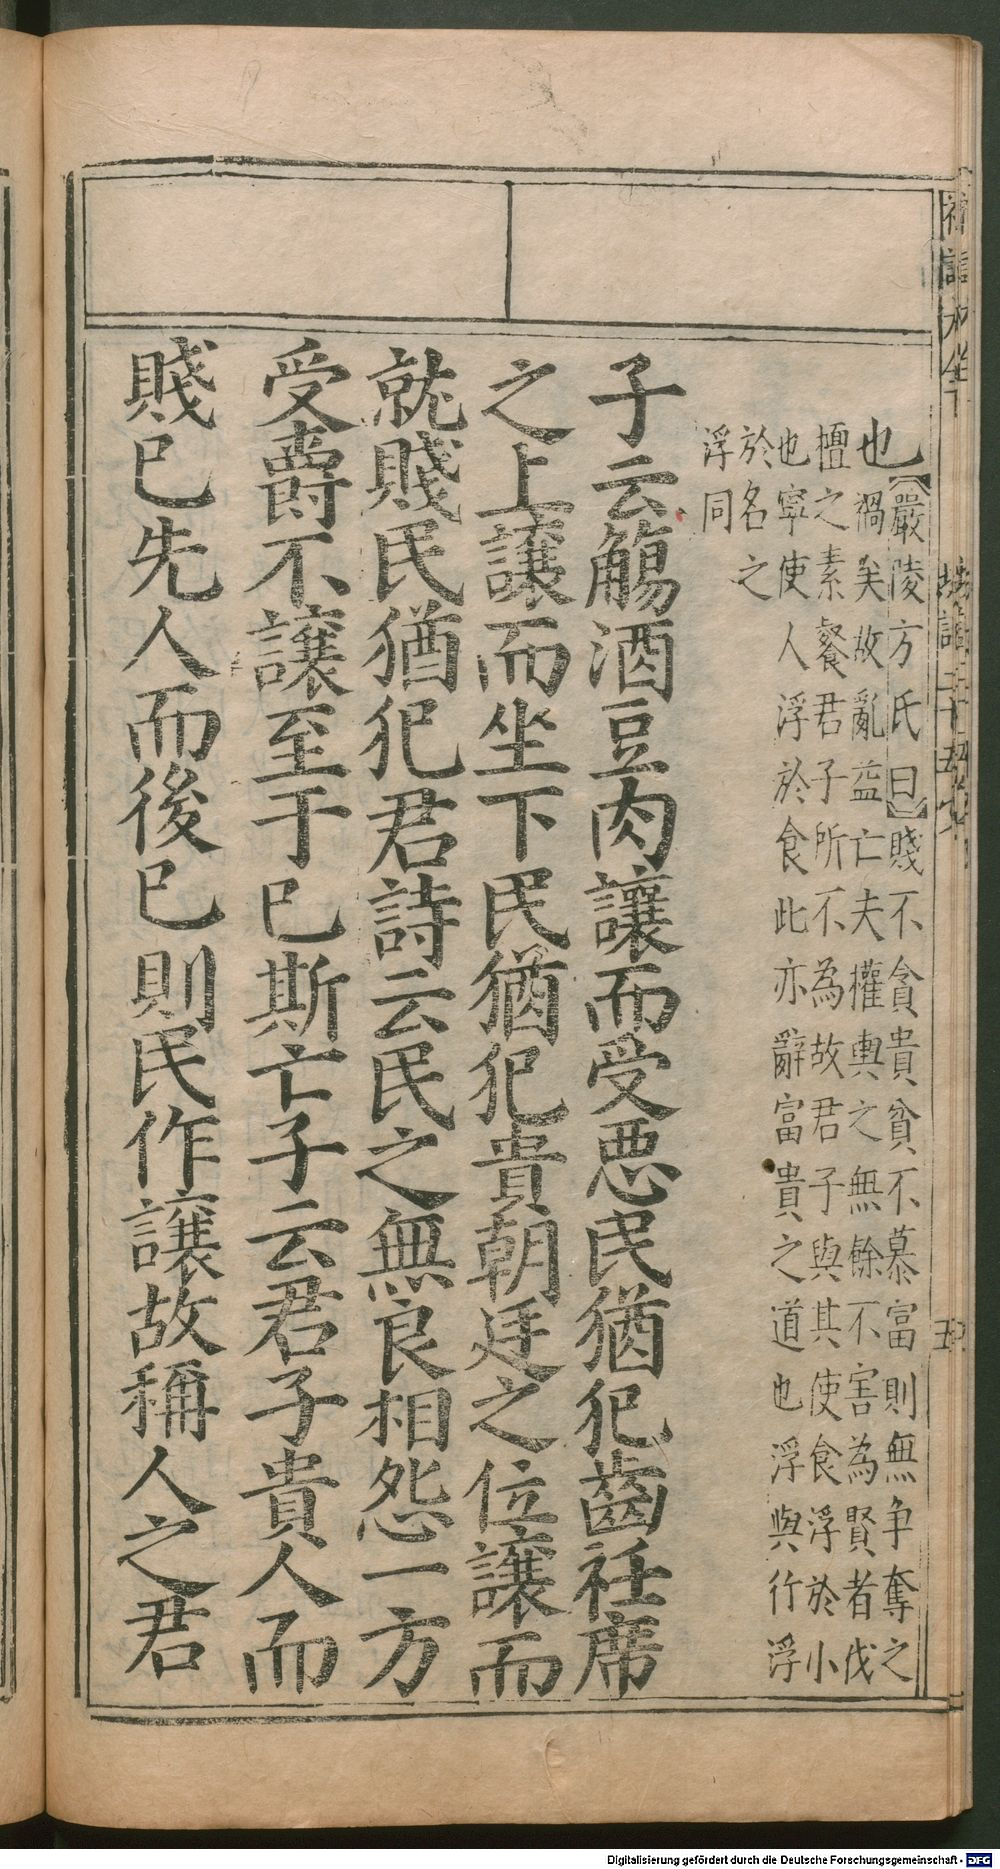 也【嚴陵方氏曰】賤不貪貴貧不慕富則無争奪之
禍矣故亂益亡夫權輿之無餘不害為賢者伐
檀之素餐君子所不為故君子與其使食浮於小
也寧使人浮於食此亦辭富貴之道也浮與行浮
於名之
浮同
子云觴酒豆肉讓而受惡民猶犯齒衽席
之上讓而坐下民猶犯貴朝廷之位讓而
就賤民猶犯君詩云民之無良相怨一方
受爵不讓至于已斯亡子云君子貴人而
賤已先人而後已則民作讓故稱人之君
Digitalisierung gefördert durch die Deutsche Forschungsgemeinschaft - DFG